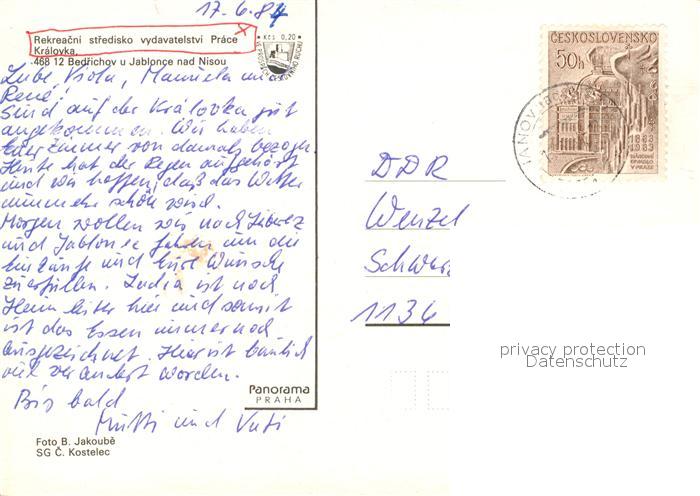 17.6.84
Rekreační středisko vydavatelství Práce
Královka,
468 12 Bedřichov u Jablonce nad Nisou
Kčs 0,20
Liebe Viola, Manuela und
René!
Sind auf der Královka gut
angekommen. Wir haben
Euer Zimmer von damals bezogen.
Heute hat der Regen aufgehört
und wir hoffen, daß das Wetter
nunmehr schön wird.
Morgen wollen wir nach Liberec
und Jablonec fahren um die
Einkäufe und Eure Wünsche
zu erfüllen. Ludia ist noch
Heimleiter hier und somit
ist das Essen immer noch
ausgezeichnet. Hier ist baulich
viel verändert worden.
Bis bald
Mutti und Vati
Panorama
PRAHA
Foto B. Jakoubě
SG Č. Kostelec
ČESKOSLOVENSKO
50h
1883
1983
NÁRODNÍ
DIVADLO
V PRAZE
JANOV
DDR
Wenzel
Schwarz
1136
privacy protection
Datenschutz